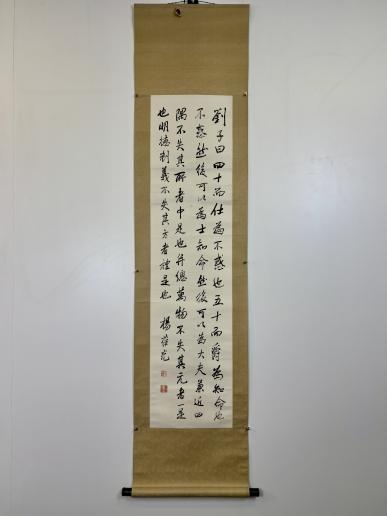 劉子曰四十而仕為不惑也五十而爵為知命也
不惑然後可以為士知命然後可以為大夫兼近四
隅不失其所者中是也并總萬物不失其元者一是
也明德制義不失其方者禮是也 楊